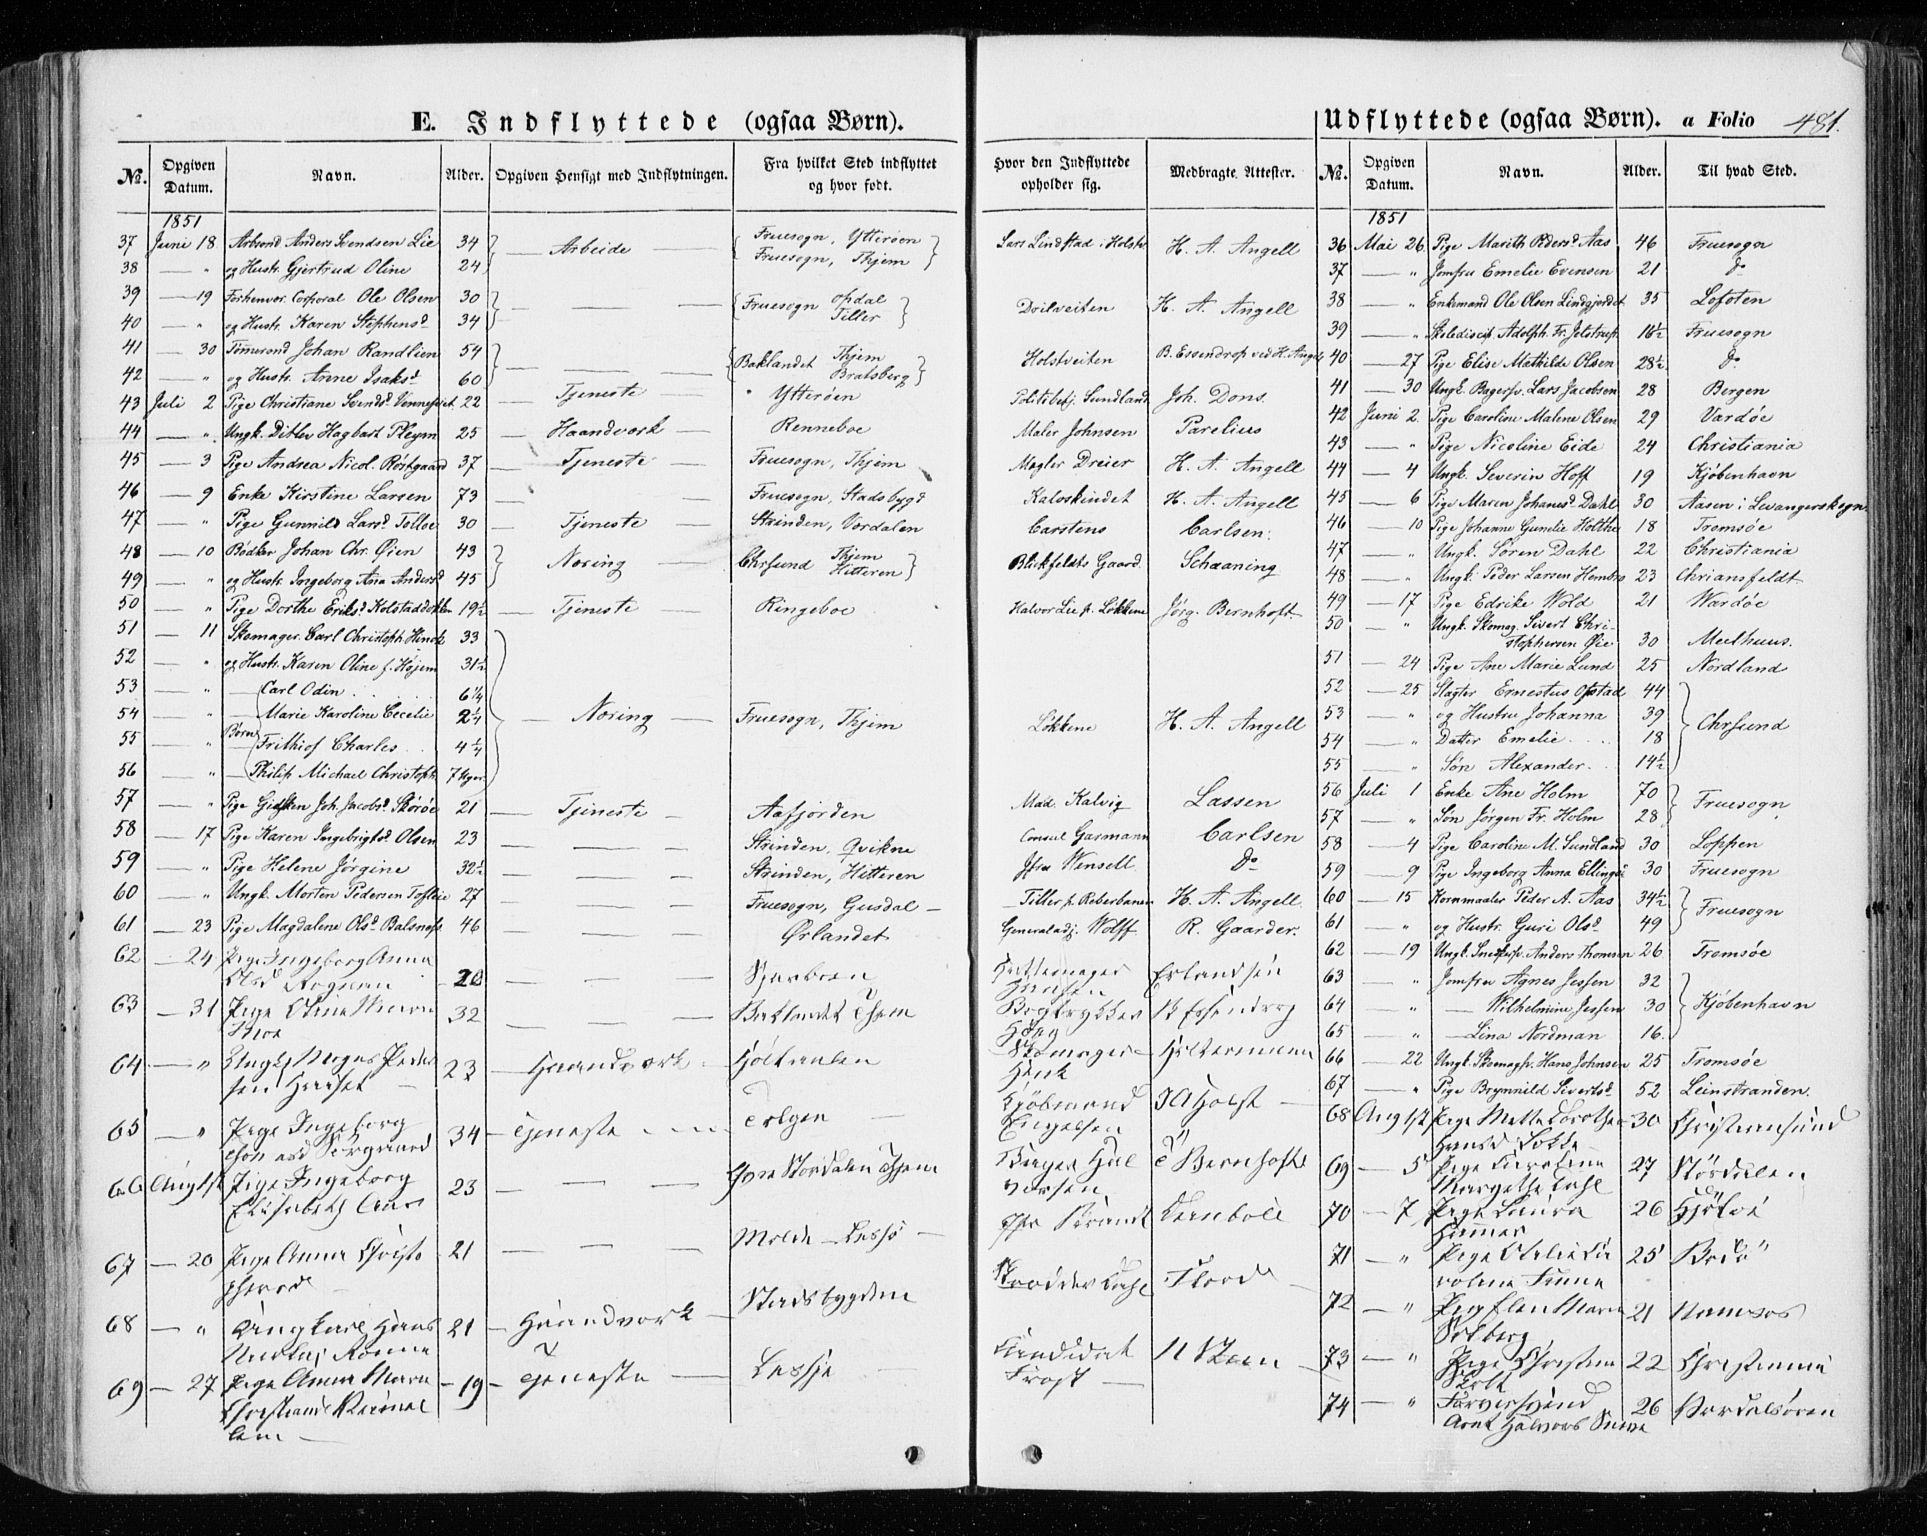 E. Indflyttede (ogsaa Børn).
No. Opgiven Datum. Navn. Alder. Opgiven Hensigt med Indflytningen. Fra hvilket Sted indflyttet og hvor født. Hvor den Indflyttede opholder sig. Medbragte Attester.
1851
37 Juni 18 Arbsmd Anders Svendsen Lie 34 Arbeide Fruesogn, Ytterøen Lars Lindstad i Holstv H. A. Angell
38 — " og Hustr. Gjertrud Oline 24 Fruesogn, Thjem
39 — 19 Forhenvær. Corporal Ole Olsen 30 — — — Fruesogn Opdal Drilveiten H. A. Angell
40 — " og Hustr. Karen Stephensd 34 Tiller
41 — 30 Tømmermd Johan Randlien 54 — — — Baklandet Thjem Holstveiten B. Essendrop ved H. Angel
42 — " og Hustr. Anne Isaksd 60 Bratsberg
43 Juli 2 Pige Christiane Svendsd 22 Tjeneste " Ytterøen Politibetj. Sundland Joh. Dons.
44 — " Ungk. Ditlev Hagbart Pleym 25 — Haandværk — Renneboe Maler Johnsen Parelius
45 — 3 Pige Andrea Nicol. Røstgaard 37 — Tjeneste — Fruesogn, Thjem Mægler Dreier H. A. Angell
46 — 9 Enke Kirstine Larsen 73 — Fruesogn, Stadsbygd Kalvskindet H. A. Angell
47 — " Pige Gunnild Larsd Tolloe 30 — Tjeneste — Strinden, Værdalen Carstens Carlsen.
48 — 10 Bødker Johan Chr. Øien 43 Næring Chrsund Thjem Blikfeldts Gaard. Schaaning
49 — " og Hustr. Ingeborg Ana Andersd 45 Hitteren
50 — " Pige Dorthe Eriksd 19½ — Tjeneste — Ringeboe Halvor Lie p. Løkkene Jørg. Bernhoft.
51 — 11 Skomager Carl Christoph. Hinck 33
52 — " og Hustr. Karen Oline f. Højem 31½
53 — " Carl Odin 6¼
54 — " Marie Karoline Cecilie 2¼ — Næring — Fruesogn, Thjem Løkkene H. A. Angell
55 — " Børn Frithiof Charles 4¼
56 — " Philip Michael Christoph. 7 Uger
57 — " Pige Gidsken Joh. Jacobsd Skørøe 21 — Tjeneste — Aafjorden Mad. Kalvig Lassen
58 — 17 Pige Karen Ingebrigtsd Olsen 23 — — — Strinden, Qvikne Consul Garmann Carlsen
59 — " Pige Helene Jørgine 32½ — — — Strinden, Hitteren Jfru Wensell Do
60 — " Ungk. Morten Pedersen 27 — — — Fruesogn, Gusdal — Tiller p. Reberbanen H. A. Angell
61 — 23 Pige Magdalene Olsd Balsnes 46 — — — Ørlandet Generaladj. Wolff R. Gaarder.
62 — 24 Pige Ingeborg Anna
Olsd 20 — — — Erlandsen
63 — 31 Pige Oline Maria
Moe 32 — — — Baklandet Thjem Bogtrykker Høeg B Essendrop
64 — " Ungk Mogns Peder
sen 23 — Haandværk — Holtaalen Skomager Hink Holtermann
65 — " Pige Ingeborg
34 — Tjeneste — Tolgen Kjøbmand Engelsen I A Holst —
66 August Pige Ingeborg
Elisabeth Aas 23 — — — Øvre Stordalen Thjem Bager Hal
vorsen Bernhoft
67 — 20 Pige Anna Christo
phersd 21 — — — Molde — Lessø — Jfr Brandt
68 — " Ungkarl Hans
Nicolaj Rønne 21 — Haandværk — Stadsbygden Skrædder Dahl Flood
69 — 27 Pige Anna Maria
Christiansd — 19 — Tjeneste — Lessje — Kandidat Frost N Steen
Udflyttede (ogsaa Børn). a Folio 481.
No. Opgiven Datum. Navn. Alder. Til hvad Sted.
1851
36 Mai 26 Pige Marith Pedersd Aas 46 Fruesogn
37 — " Jomfru Emelie Evensen 21 Do
38 — " Enkemand Ole Olsen Lindgjordet 35 Lofoten
39 — " Adolph Fr. 18½ Fruesogn
40 — 27 Pige Elise Mathilde Olsen 28½ Do
41 — 30 Ungk. Bagersv. Lars Jacobsen 28 Bergen
42 Juni 2. Pige Caroline Malene Olsen 29 Vardøe
43 — " Pige Nicoline Eide 24 Christiania
44 — 4 Ungk. Severin Hoff 19 Kjøbenhavn
45 — 6 Pige Maren Johanesd Dahl 30 Aasen i Levangerskogn
46 — 10 Pige Johanne Gunelie Holthe 18 Tromsøe
47 — " Ungk. Søren Dahl 22 Christiania
48 — " Ungk. Peder Larsen Hembre 23 Chriansfeldt
49 — 17 Pige Edrike Wold 21 Wardøe
50 — " Ungk. Skomag. Sivert Chri-
stophersen Øie 30 Melhuus.
51 — 24 Pige Ane Marie Lund 25 Nordland
52 — 25 Slagter Ernestus Opstad 44
53 — " og Hustru Johanna 39 Chrsund
54 — " Datter Emelie 18
55 — " Søn Alexander 14½
56 Juli 1 Enke Ane Holm 70 Fruesogn
57 — " Søn Jørgen Fr. Holm 28
58 — 4 Pige Caroline M. Sundland 30 Loppen
59 — 9 Pige Ingeborg Anna Ellingsd 30 Fruesogn
60 — 15 Kornmaaler Peder A. Aas 34½ Fruesogn
61 — " og Hustr. Guri Olsd 49
62 — 19 Ungk. Snedkersv. Anders Thomsen 26 Tromsøe
63 — " Jomfru Agnes Jessen 32
64 — " — Wilhelmine Jessen 30 Kjøbenhavn
65 — " — Lina Nordman 16.
66 — 22 Ungk. Skomagsv. Hans Johnsen 25 Tromsøe
67 — " Pige Brynnild Sivertsd 52 Leinstranden.
68 Aug 1st Pige Mette Dorothea
Hansd 30 Christiansund
69 — 5 Pige Karoline
Margrethe Dahl 27 Størdalen
70 — 7 Pige Laura
Hammer 26
71 — " Pige
Finne 25 Bodø
72 — " Pig Elen Maria
Solberg 21 Namsos
73 — " Pige Christine
22 Christiania
74 — " Farversvend
Arnt Halvors 26 Værdalsøren